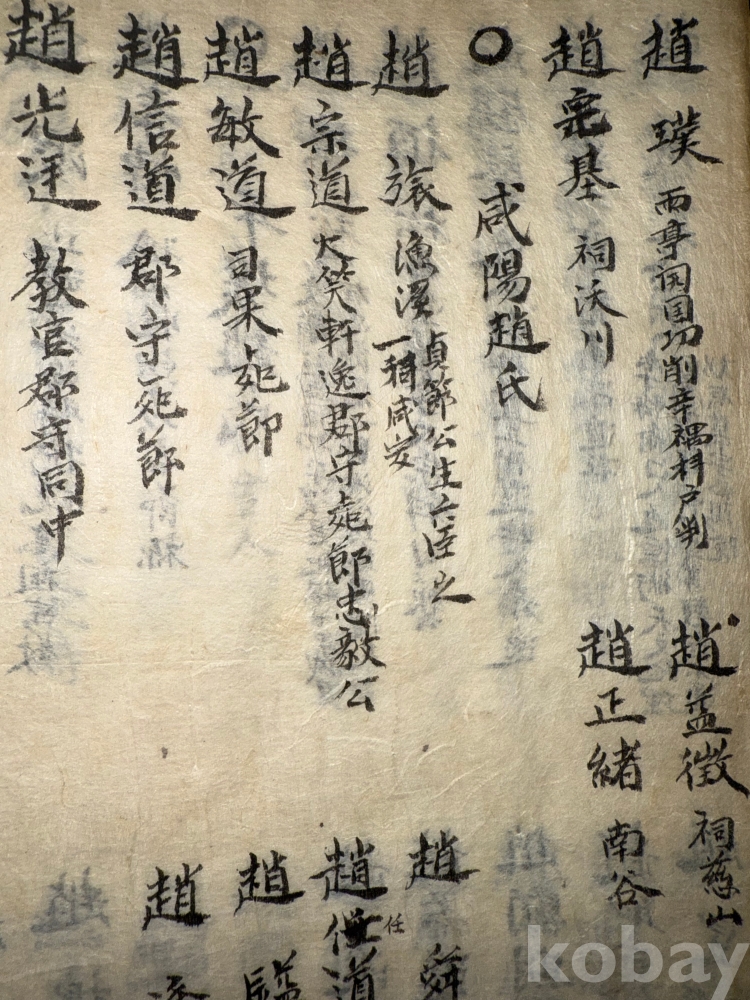 趙 璞 雨亭 開国功削辛禑朴戸判
趙益徵 祠慈山
趙完基 祠沃川
趙正緖 南谷
○ 咸陽趙氏
趙 張 漁溪 貞節公生六臣之
一稱咸安
趙 舜
趙宗道 大笑軒逸郡守死節忠毅公
趙任道
任
趙敏道 司果死節
趙
趙信道 郡守死節
趙
趙光廷 教官郡守同中
kobay